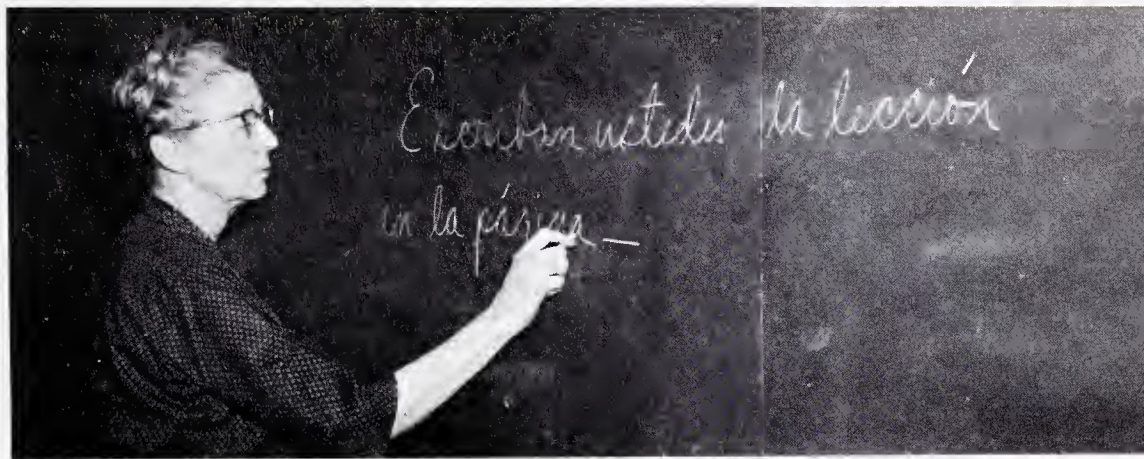 Escriban ustedes la lección
en la página —